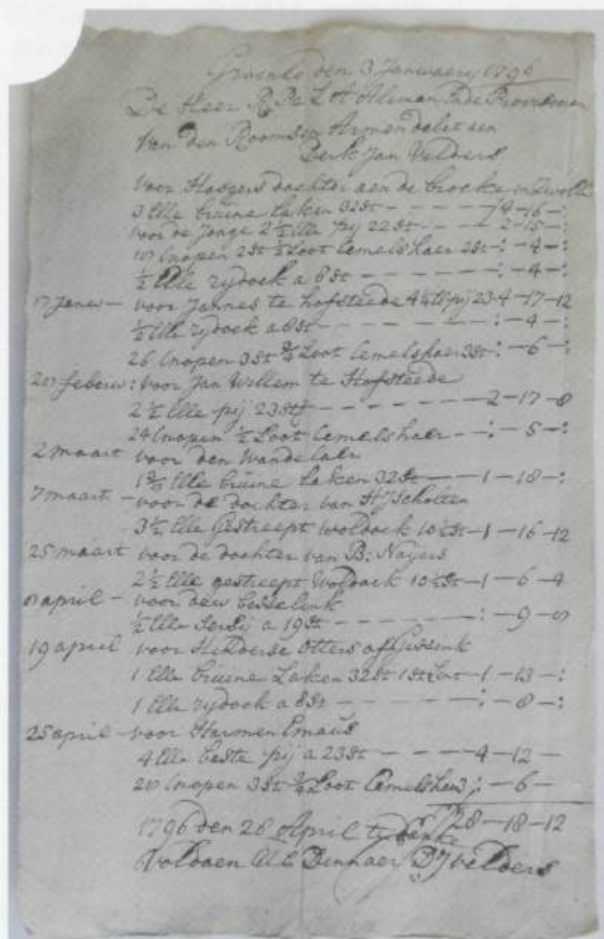 Groenlo den 3 Januaery 1796
De Heer R Pr L A Aleman En de Provisoren
Van den Roomsen Armen debet aen
Derk Jan Velders
voor Hasgers dochter aen de broeke in Zwolle
3 Elle bruine laken 32 St - - - 4-16-:
voor de Jonge 2½ Elle pij 22 St - - - 2-15-:
10 Cnopen 2 St ½ Loot Cemelshaer 2 St : -4-:
½ Elle zijdoek a 8 St - - - : -4-:
17 Janu - voor Jannes te hofsteede 4¼ Ele pij 23-4-17-12
½ Elle zijdoek a 8 St - - - : -4-:
26 Cnopen 3 St ¾ Loot Cemelshaer 3 St : -6-:
20 febru: voor Jan Willem te Hofsteede
2½ Elle pij 23 St - - - 2-17-8
24 Cnopen ½ Loot Cemelshaer - : -5-:
2 maart voor den Wandelaer
1 Elle bruine Laken 32 St - - - 1-18-:
7 maart - voor de dochter van HJ Scholten
3½ Elle Gestreept woldoek 10½ St - 1-16-12
25 maart voor de dochter van B: Nayers
2½ Elle gestreept Woldoek 10½ St - 1-6-4
april - voor Besselink
½ Elle Sersij a 19 St - - - : -9-
19 april voor Hilderse Otters of Gessink
1 Elle bruine Laken 32 St 1 St - 1-13-:
1 Elle zijdoek a 8 St - - - : -8-:
25 april - voor Harmen Emaus
4 Elle beste pij a 23 St - - - 4-12-
20 Cnopen 3 St ¾ Loot Cemelshaer : -6-
28-18-12
1796 den 26 April te danke
Voldaen UE Dinnaer DJ Velders